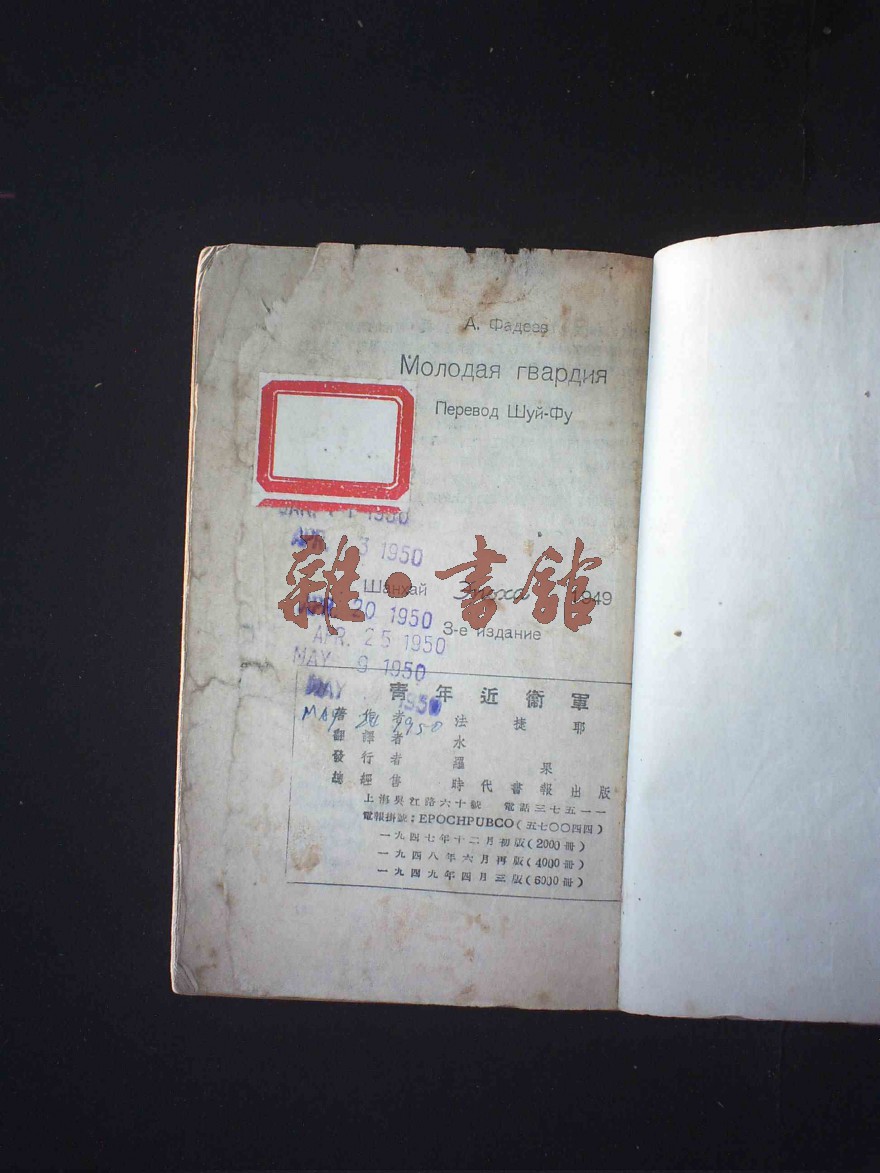 А. Фадеев
Молодая гвардия
Перевод Шуй-Фу
1950
APR. 3 1950
雜·書館
Шанхай Эпоха 1949
APR. 20 1950
3-е издание
APR. 25 1950
MAY 9 1950
MAY 1950
青年近衛軍
MAY 24 1950
著作者 法捷耶
翻譯者 水
發行者 羅果
總經售 時代書報出版
上海吳江路六十號 電話三七五一一
電報掛號:EPOCHPUBCO(五七〇〇四四)
一九四七年十二月初版(2000冊)
一九四八年六月再版(4000冊)
一九四九年四月三版(6000冊)